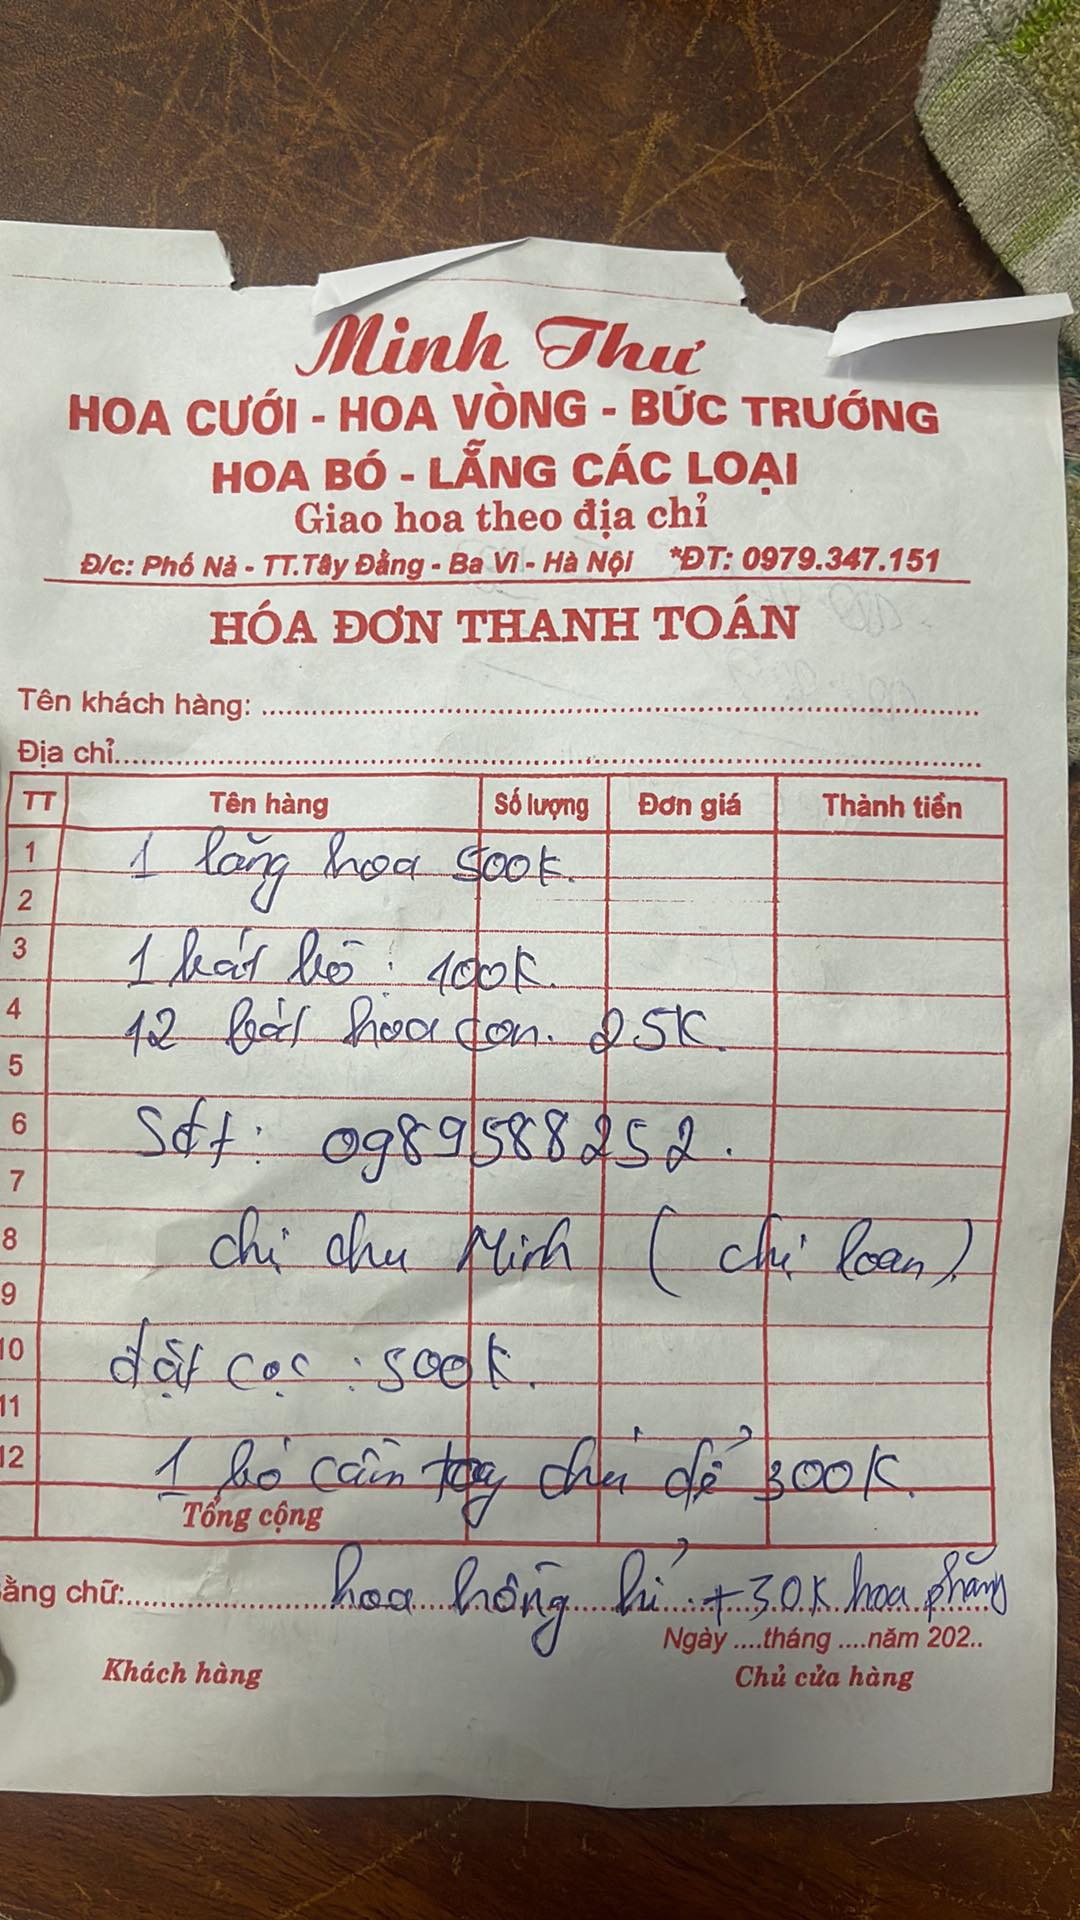 Minh Thư
HOA CƯỚI - HOA VÒNG - BỨC TRƯỚNG
HOA BÓ - LẴNG CÁC LOẠI
Giao hoa theo địa chỉ
Đ/c: Phố Nả - TT.Tây Đằng - Ba Vì - Hà Nội *ĐT: 0979.347.151
HÓA ĐƠN THANH TOÁN
Tên khách hàng:
Địa chỉ
TT Tên hàng Số lượng Đơn giá Thành tiền
1 1 lẵng hoa 500K.
2
3 1 bát bồ : 100K.
4 12 bát hoa con. 25K.
5
6 Sđt: 0989588252.
7
8 chị chu Minh (chị loan).
9
10 đặt cọc : 500K.
11
12 1 bó cầm tay chú dể 300K.
Tổng cộng
ằng chữ: hoa hồng + 30K hoa phăng
Ngày ....tháng ....năm 202..
Khách hàng Chủ cửa hàng